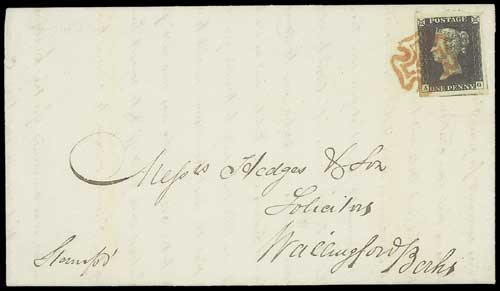 POSTAGE
ONE PENNY
Messrs Hedges & Son
Solicitors
Wallingford
Berks